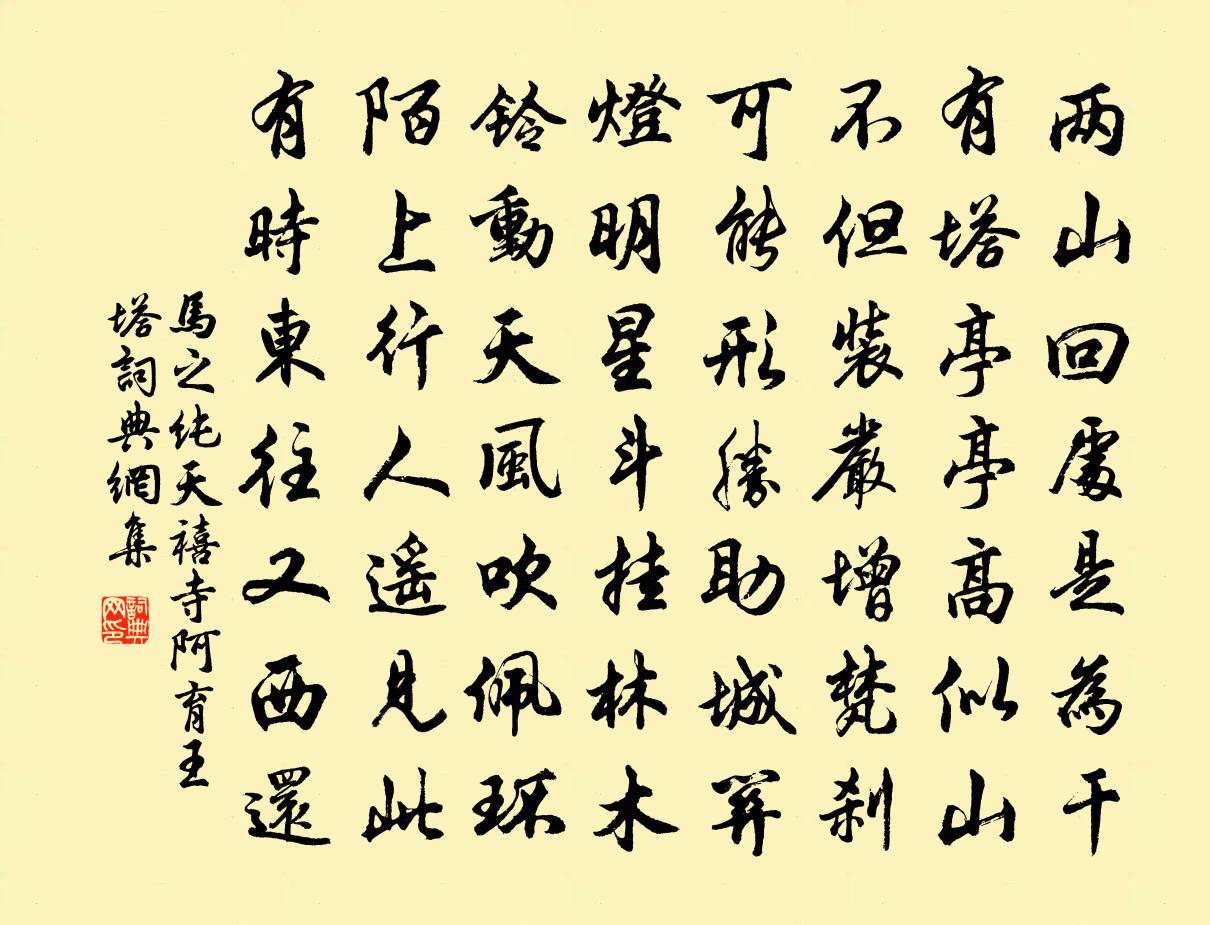 两山回處是為干
有塔亭亭高似山
不但裝嚴增梵刹
可能形勝助城關
燈明星斗挂林木
鈴動天風吹佩环
陌上行人遥見此
有時東往又西還
馬之純天禧寺阿育王
塔詞典網集
詞典
网印